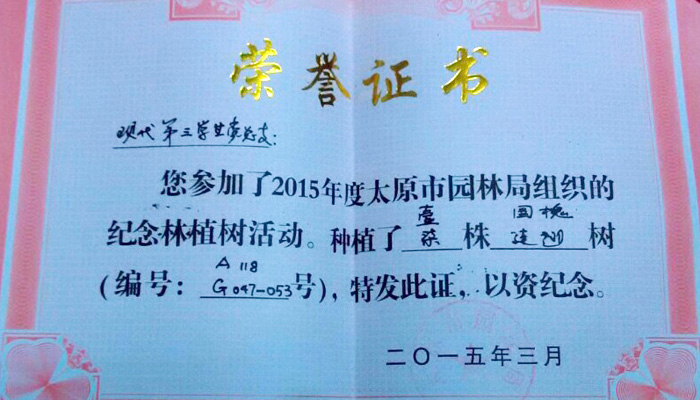 荣誉证书
现代第三学生党总支:
您参加了2015年度太原市园林局组织的
壹 国槐
纪念林植树活动。种植了柒株连翘树
A 118
(编号: G047-053号), 特发此证, 以资纪念。
二〇一五年三月